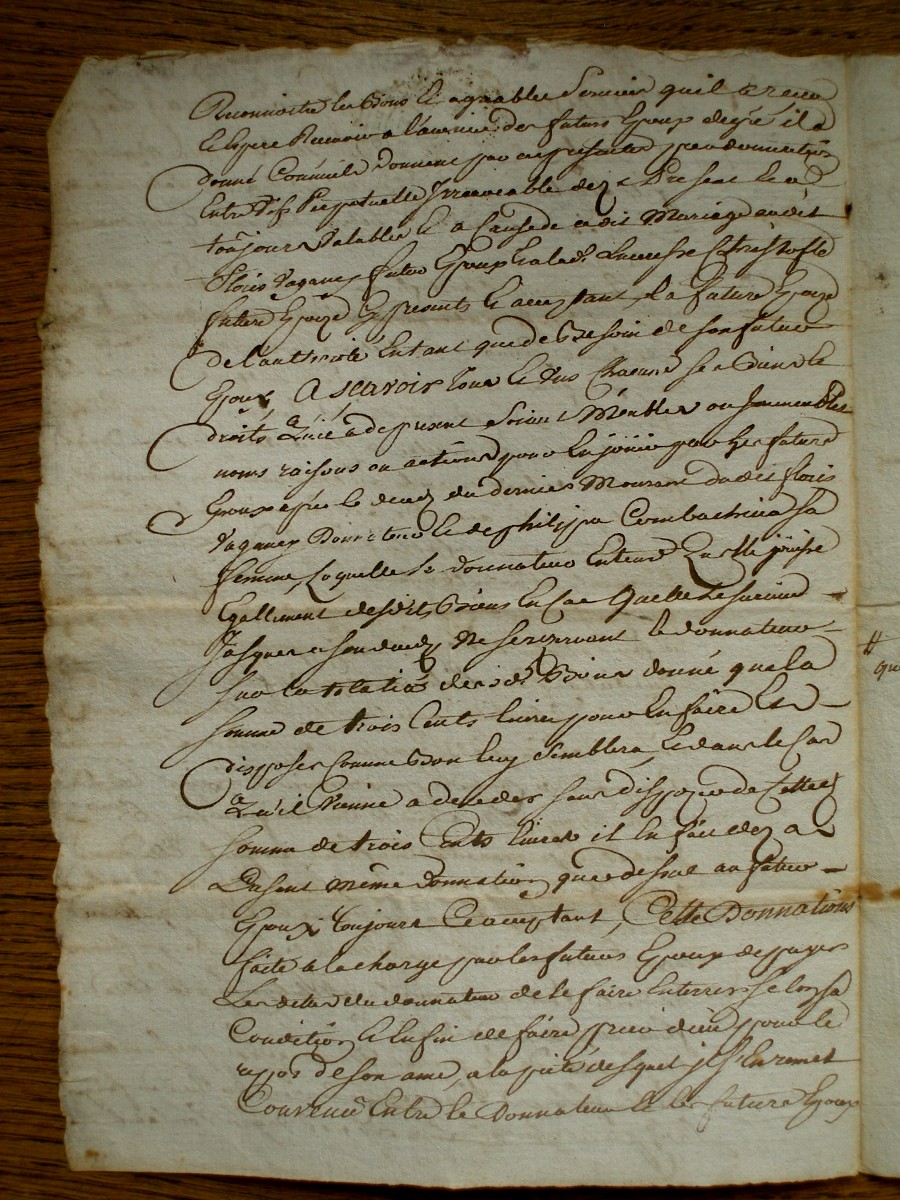 Reconnoitre les bons et agreables Services quil a receu
et Espere Recevoir a l'avenir des futurs Epoux de gré il a
donné Comme il donne par ces presentes par donnation
Entre vifs Perpetuelle Irrevocable dez a Present et a
toujours Valable et a Cause de ce dit Mariage audit
futur Epoux et a lad. Christofle
future Epouze presents et acceptant, la future Epouze
de l'authorité En tant que de Besoin de son futur
Epoux, A Scavoir tous et uns Chacuns ses Biens et
droits qu'il a de present Soient Meubles ou Immeubles
noms raisons ou actions pour En joüir par les futurs
Epoux aprés le deced du dernier Mourant dudit
Donnateur et de philippa sa
femme, Laquelle le donnateur Entend qu'elle joüisse
Egallement desdits Biens En Cas quelle le survive
Jusques a son deced ne se reservant le donnateur
sur la totalité desd. Biens donné que la
somme de trois Cents livres pour En faire Et
disposer Comme Bon luy Semblera, et dans le Cas
qu'il Vienne a deceder sans disposer de Cette
somme de trois Cents livres il En fait dez a
Present même donnation que dessus au futur
Epoux Toujours Ce acceptant, Cette Donnation
faite a la charge par les futurs Epoux de payer
Les dettes du donnateur de le faire Enterrer Selon sa
Condition et Enfin de faire prier dieu pour le
repos de son ame, a la pieté desquels il s'En remet
Convenu Entre le Donnateur et les futurs Epoux